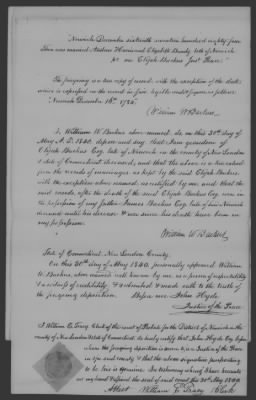 "Norwich December sixteenth seventeen hundred eighty four
Then was married Andrew Harris and Elizabeth Bushby both of Norwich
pr me Elijah Backus Just Peace"
The foregoing is a true copy of record, with the exception of the date
which is expressed in the record in four legible and of figures as follows
"Norwich December 16th 1784."
William W Backus
I, William W Backus above named, do on this 30th day of
May A.D. 1840. depose and say that I am grandson of
Elijah Backus Esq. late of Norwich in the county of New London
& State of Connecticut deceased, and that the above is a true extract
from the records of marriages as kept by the said Elijah Backus,
with the exception above named, as certified by me, and that the
said records, after the death of the said Elijah Backus Esq. were in
the possession of my father James Backus Esq. late of said Norwich
deceased until his decease, & were since his death have been in
my possession.
William W Backus
State of Connecticut. New London County.
On this 30th day of May 1840. personally appeared William
W Backus, above named well known by me as a person of respectability
& as a person of credibility & subscribed & made oath to the truth of
the foregoing deposition. Before me John Hyde
Justice of the Peace
I William E. Clerk of the court of Probate for the District of Norwich in the
County of New London State of Connecticut, do hereby certify that John Hyde Esq. before
whom the foregoing deposition is sworn is a Justice of the Peace
in & for said county & that the above signature purporting
to be his is genuine. In testimony whereof I have hereunto
set my hand & affixed the seal of said court this 30th May 1840
Attest William E. Clerk